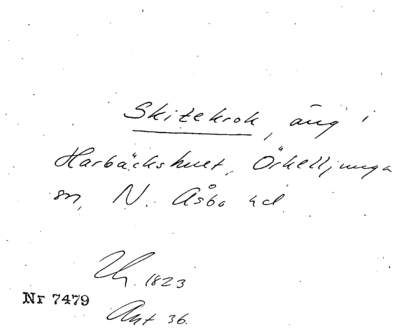 Skitekrok, äng i
Harbäckshult, Örkelljunga
sn, N. Åsbo hd.
Lh. 1823
Nr 7479
Ant 36.